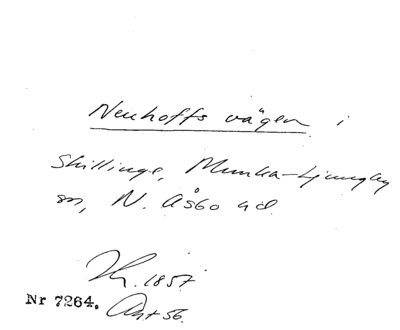 Neuhoffs vägen i
Skillinge, Munka-Ljungby
sn, N. Åsbo hd
1857
Nr 7264.
Ant 56.